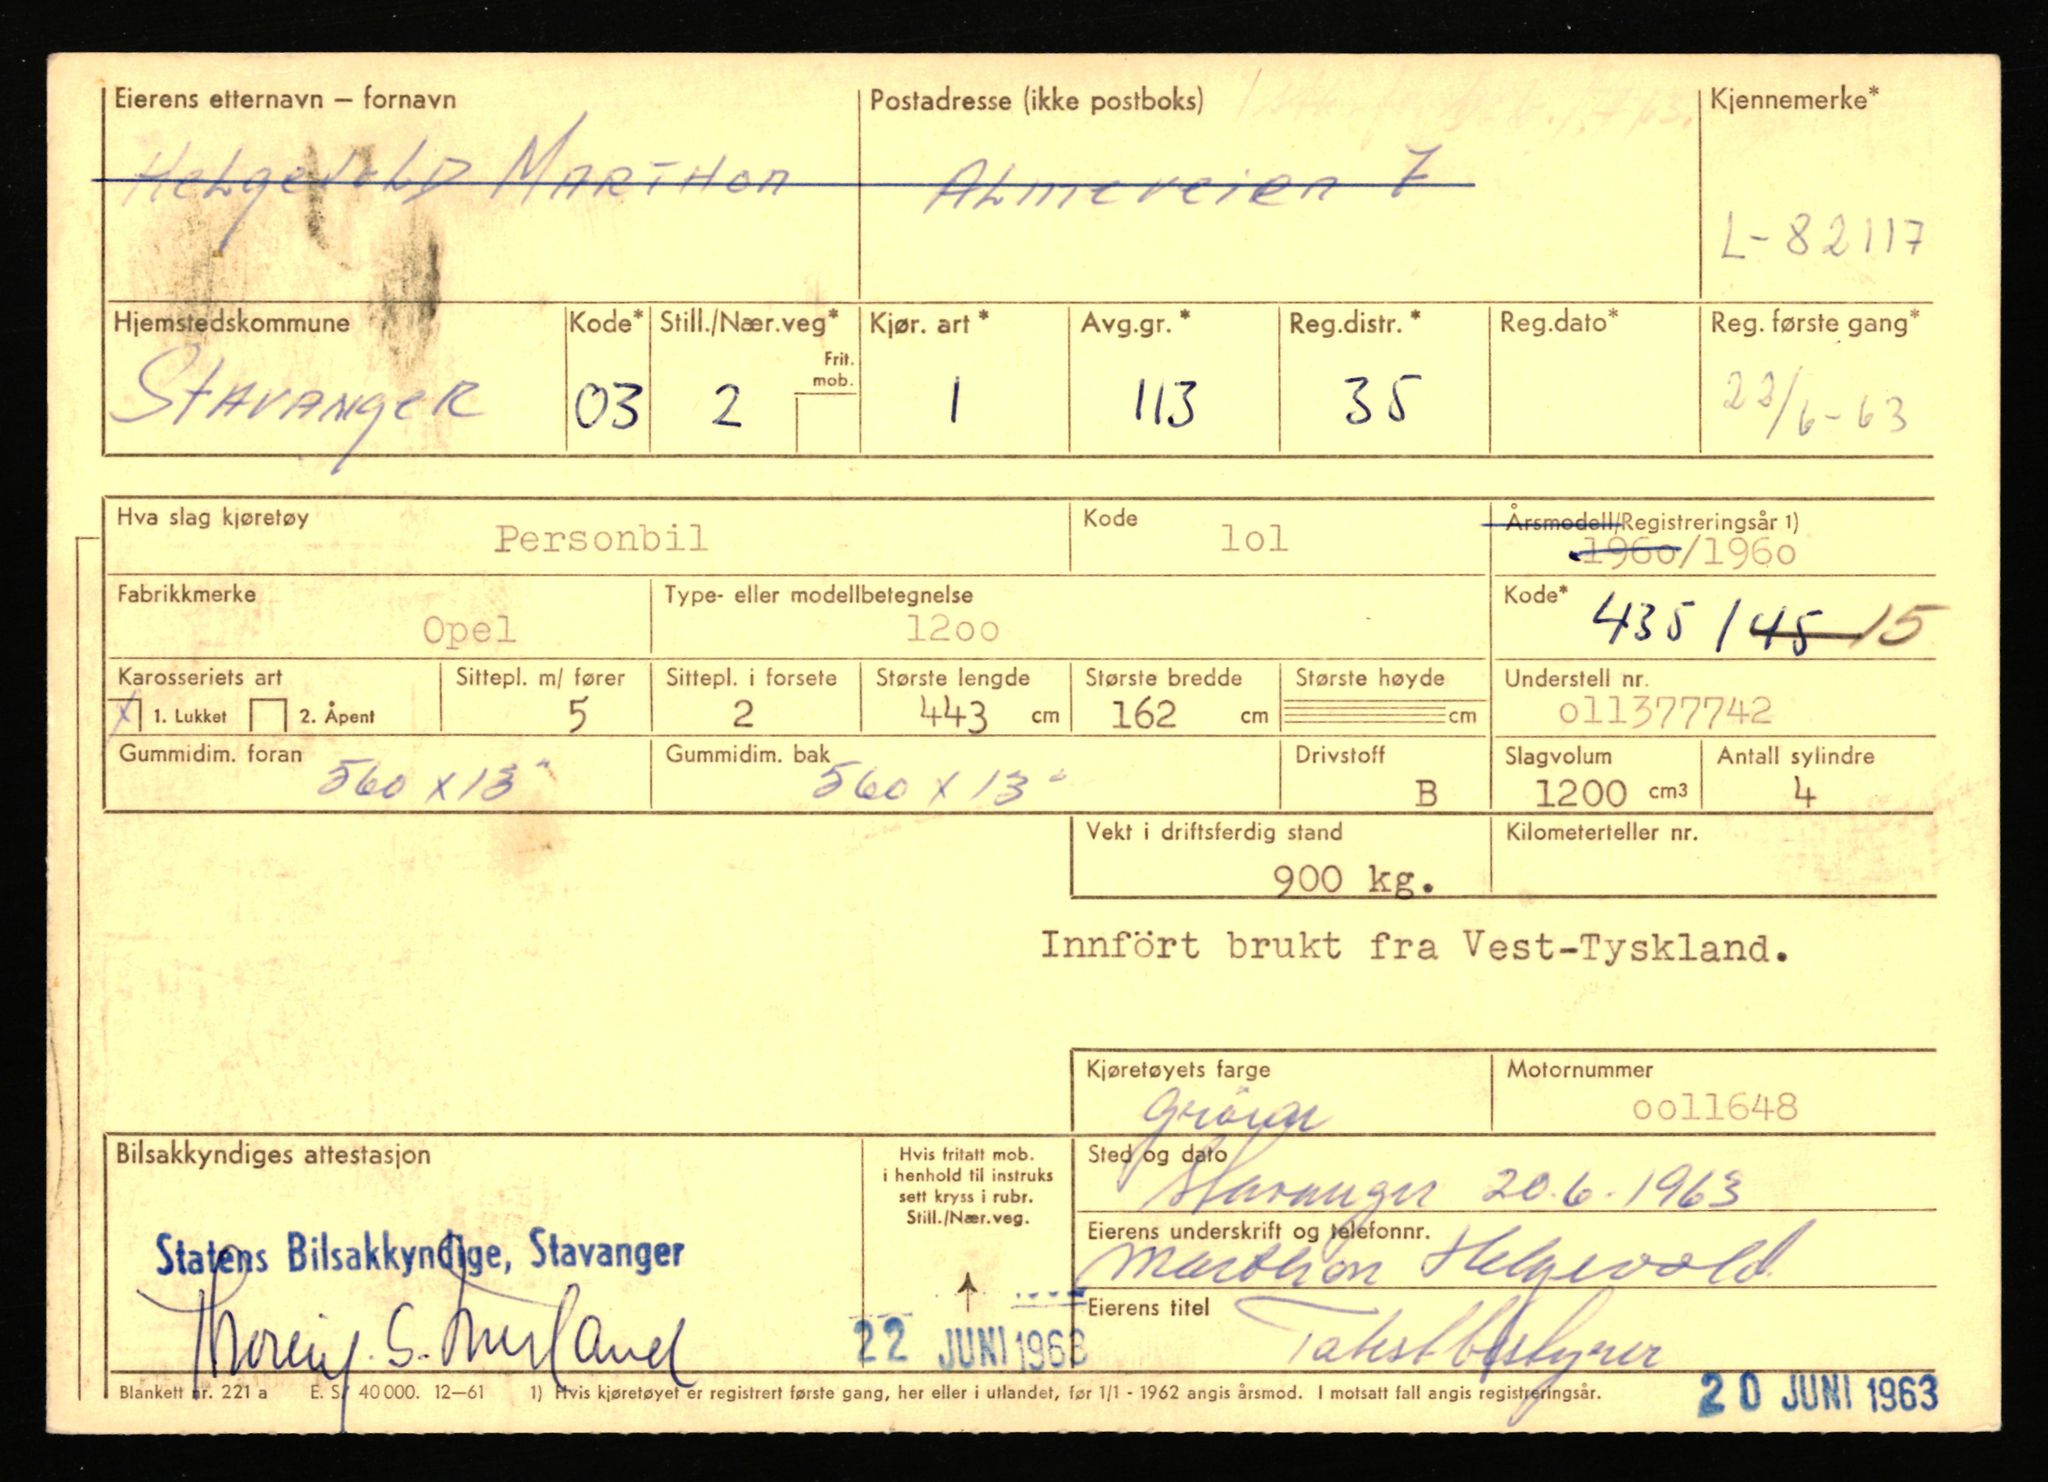 Eierens etternavn – fornavn Postadresse (ikke postboks) Kjennemerke*
Helgevold Marthon Almeveien 7
L-82117
Hjemstedskommune Kode* Still./Nær.veg* Kjør. art * Avg.gr. * Reg.distr. * Reg.dato* Reg. første gang*
Frit. mob.
Stavanger 03 2 1 113 35 22/6-63
Hva slag kjøretøy Personbil Kode 1o1 Årsmodell/Registreringsår 1)
196o/196o
Fabrikkmerke Type- eller modellbetegnelse Kode* 435 / 45 15
Opel 12oo
Karosseriets art Sittepl. m/ fører Sittepl. i forsete Største lengde Største bredde Største høyde Understell nr.
X 1. Lukket 2. Åpent 5 2 443 cm 162 cm cm o11377742
Gummidim. foran Gummidim. bak Drivstoff Slagvolum Antall sylindre
560 x 13" 560 x 13" B 1200 cm3 4
Vekt i driftsferdig stand Kilometerteller nr.
900 kg.
Innfört brukt fra Vest-Tyskland.
Kjøretøyets farge Motornummer
grönn oo11648
Bilsakkyndiges attestasjon Hvis fritatt mob. i henhold til instruks sett kryss i rubr. Still./Nær.veg. Sted og dato
Stavanger 20.6.1963
Eierens underskrift og telefonnr.
Statens Bilsakkyndige, Stavanger
Marthon Helgevold
Eierens titel
22 JUNI 1963
Blankett nr. 221 a E. S. 40 000. 12–61 1) Hvis kjøretøyet er registrert første gang, her eller i utlandet, før 1/1 - 1962 angis årsmod. I motsatt fall angis registreringsår.
20 JUNI 1963